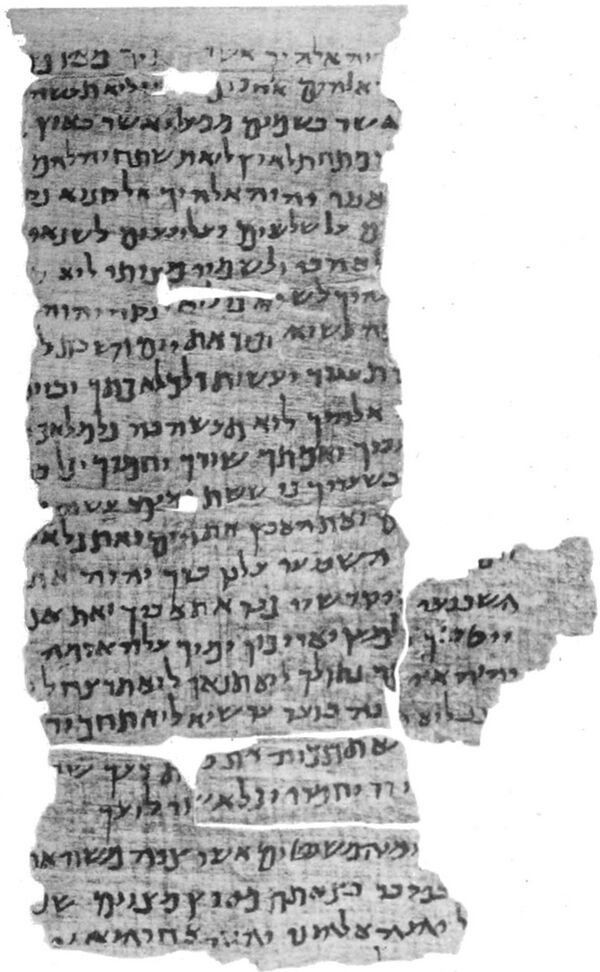 יהוה אלהיך אשר תיך מארץ מ
אלהים אחרים ני לוא תעשה
אשר בשמים ממעל ואשר בארץ
מתחת לארץ לוא תשתחוה להם
יהוה אלהיך אל קנוא פק
ם על שלשים ועל רבעים לשנאי
לאהבי ולשמרי מצותי לוא ת
להיך לשוא כי לוא ינקה יהוה
ה לשוא זכור את יום השבת ל
ם תעבוד ועשית כל מלאכתך וביום
אלהיך לוא תעשה בה כל מלאכה
עבדך ואמתך שורך וחמרך וכל ב
בשעריך כי ששת ימים עשה י
ם ואת הארץ את הים ואת כל א
ים השביעי על כן ברך יהוה את
השביעי ויקדשיו כבד את אביך ואת אמ
ייטב לך ולמען יאריכון ימיך על האדמה
יהוה אלהיך נתן לך לוא תנאף לוא תרצח לו
נב לוא ענה ברעך עד שוא לוא תחמוד
א תתאוה את ב ת רעך שד
ורו וחמרו וכל אשר לרעך
ים והמשפטים אשר צוה משה את
במדבר בצאתם מארץ מצרים שמ
ל יהוה אלהינו יהוה אחד הוא וא